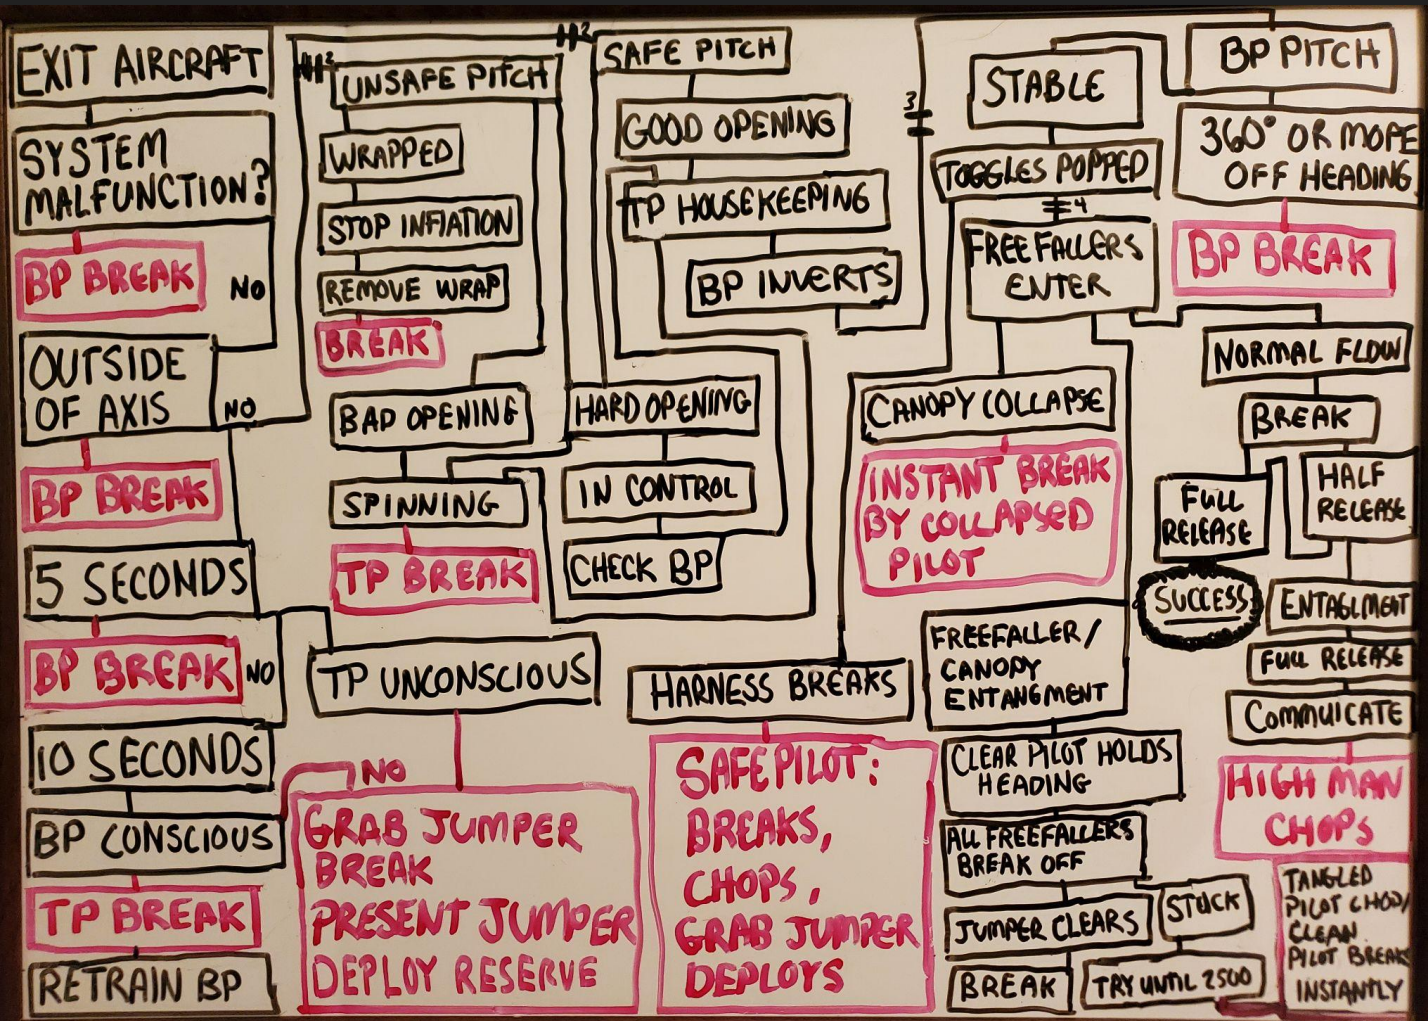 EXIT AIRCRAFT
SYSTEM
MALFUNCTION?
BP BREAK
NO
OUTSIDE
OF AXIS
NO
BP BREAK
5 SECONDS
BP BREAK
NO
10 SECONDS
BP CONSCIOUS
TP BREAK
RETRAIN BP
2
2
UNSAFE PITCH
WRAPPED
STOP INFIATION
REMOVE WRAP
BREAK
BAD OPENING
SPINNING
TP BREAK
TP UNCONSCIOUS
NO
GRAB JUMPER
BREAK
PRESENT JUMPER
DEPLOY RESERVE
SAFE PITCH
GOOD OPENING
TP HOUSEKEEPING
BP INVERTS
HARD OPENING
IN CONTROL
CHECK BP
HARNESS BREAKS
SAFE PILOT:
BREAKS,
CHOPS,
GRAB JUMPER
DEPLOYS
3
STABLE
TOGGLES POPPED
4
FREEFALLERS
ENTER
CANOPY COLLAPSE
INSTANT BREAK
BY COLLAPSED
PILOT
FREEFALLER/
CANOPY
ENTANGMENT
CLEAR PILOT HOLDS
HEADING
ALL FREEFALLERS
BREAK OFF
JUMPER CLEARS
BREAK
STUCK
TRY UNTIL 2500
BP PITCH
360° OR MORE
OFF HEADING
BP BREAK
NORMAL FLOW
BREAK
FULL
RELEASE
HALF
RELEASE
SUCCESS
ENTAGLMENT
FULL RELEASE
COMMUICATE
HIGH MAN
CHOPS
TANGLED
PILOT CHOP/
CLEAN
PILOT BREAK
INSTANTLY